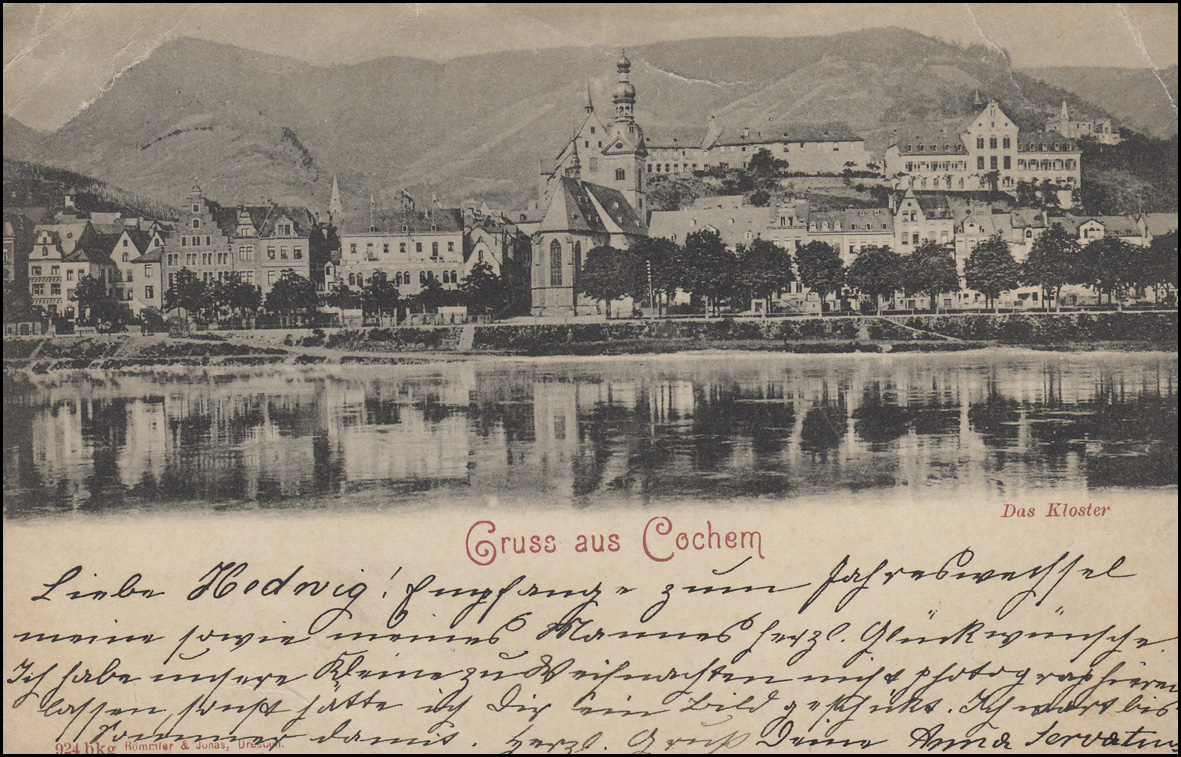 Das Kloster
Gruss aus Cochem
Liebe Hedwig! Empfange zum Jahreswechsel
meine sowie meines Mannes herzl. Glückwünsche.
Ich habe unsere Kleine zu Weihnachten nicht photographieren
lassen sonst hätte ich Dir ein Bild geschikt. Ich wart bis
Sommer damit. Herzl. Gruß Deine Anna Servatius
924 bkg Römmler & Jonas, Dresden.